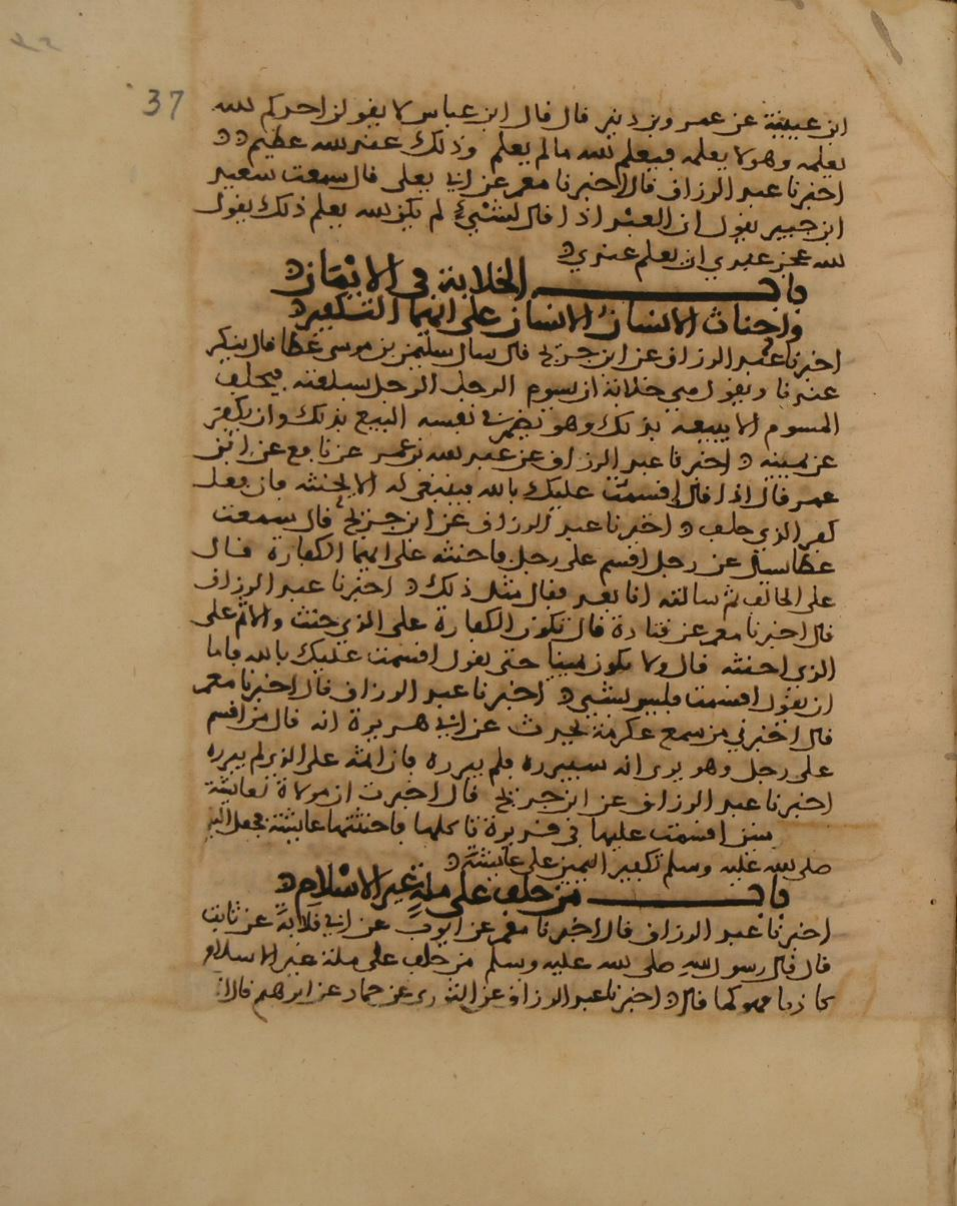 37
ابن عيينة عن عمرو بن دينر قال قال ابن عباس لا يقولن احدكم لله
يعلمه وهو لا يعلمه فيعلم لله مالم يعلم وذلك عند لله عظيم
اخبرنا عبد الرزاق قال اخبرنا معمر عن ابي يعلى قال سمعت سعيد
ابن جبير يقول ان العبد اذا قال لشيء لم يكن لله يعلم ذلك يقول
لله عجز عبدي ان يعلم عندي
باب الخلابة في الايمان
واحناث الانسان الانسان على ايهما التكفير
اخبرنا عبد الرزاق عن ابن جريج قال سال سليمن بن موسى عطا قال ينكر
عندنا ويقول هي خلابة ان يسوم الرجل الرجل بسلعته فيحلف
المسوم الا يبيعه بذلك وهو يضمر في نفسه البيع بذلك وان يكفر
عن يمينه اخبرنا عبد الرزاق عن عبد لله بن عمر عن نافع عن ابن
عمر قال اذا قال اقسمت عليك بالله فينبغي له الا يحنثه فان فعل
كفر الذي حلف اخبرنا عبد الرزاق عن ابن جريج قال سمعت
عطا سيل عن رجل اقسم على رجل فاحنثه على ايهما الكفارة قال
على الحالف ثم سالته انا بعد فقال مثل ذلك اخبرنا عبد الرزاق
قال اخبرنا معمر عن قتادة قال تكون الكفارة على الذي حنث والاثم على
الذي احنثه قال ولا يكون يمينا حتى يقول اقسمت عليك بالله فاما
ان يقول اقسمت فليس بشيء اخبرنا عبد الرزاق قال اخبرنا معمر
قال اخبرني من سمع عكرمة يحدث عن ابي هريرة انه قال من اقسم
على رجل وهو يرى انه سيبرره فلم يبرره فان اثمه على الذي لم يبرره
اخبرنا عبد الرزاق عن ابن جريج قال اخبرت ان مولاة لعايشة
اقسمت عليها في قديدة تاكلها فاحنثتها عايشة فجعل النبي
صلى لله عليه وسلم تكفير اليمين على عايشة
باب من حلف على ملة غير الاسلام
اخبرنا عبد الرزاق قال اخبرنا معمر عن ايوب عن ابي قلابة عن ثابت
قال قال رسول لله صلى لله عليه وسلم من حلف على ملة غير الاسلام
كاذبا فهو كما قال اخبرنا عبد الرزاق عن الثوري عن حماد عن ابرهيم قال